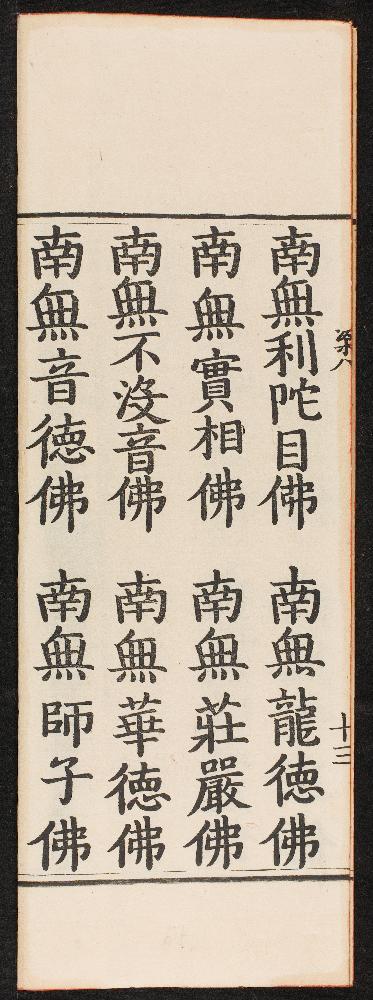 南無利陀目佛 南無龍德佛
南無實相佛 南無莊嚴佛
南無不沒音佛 南無華德佛
南無音德佛 南無師子佛
十三